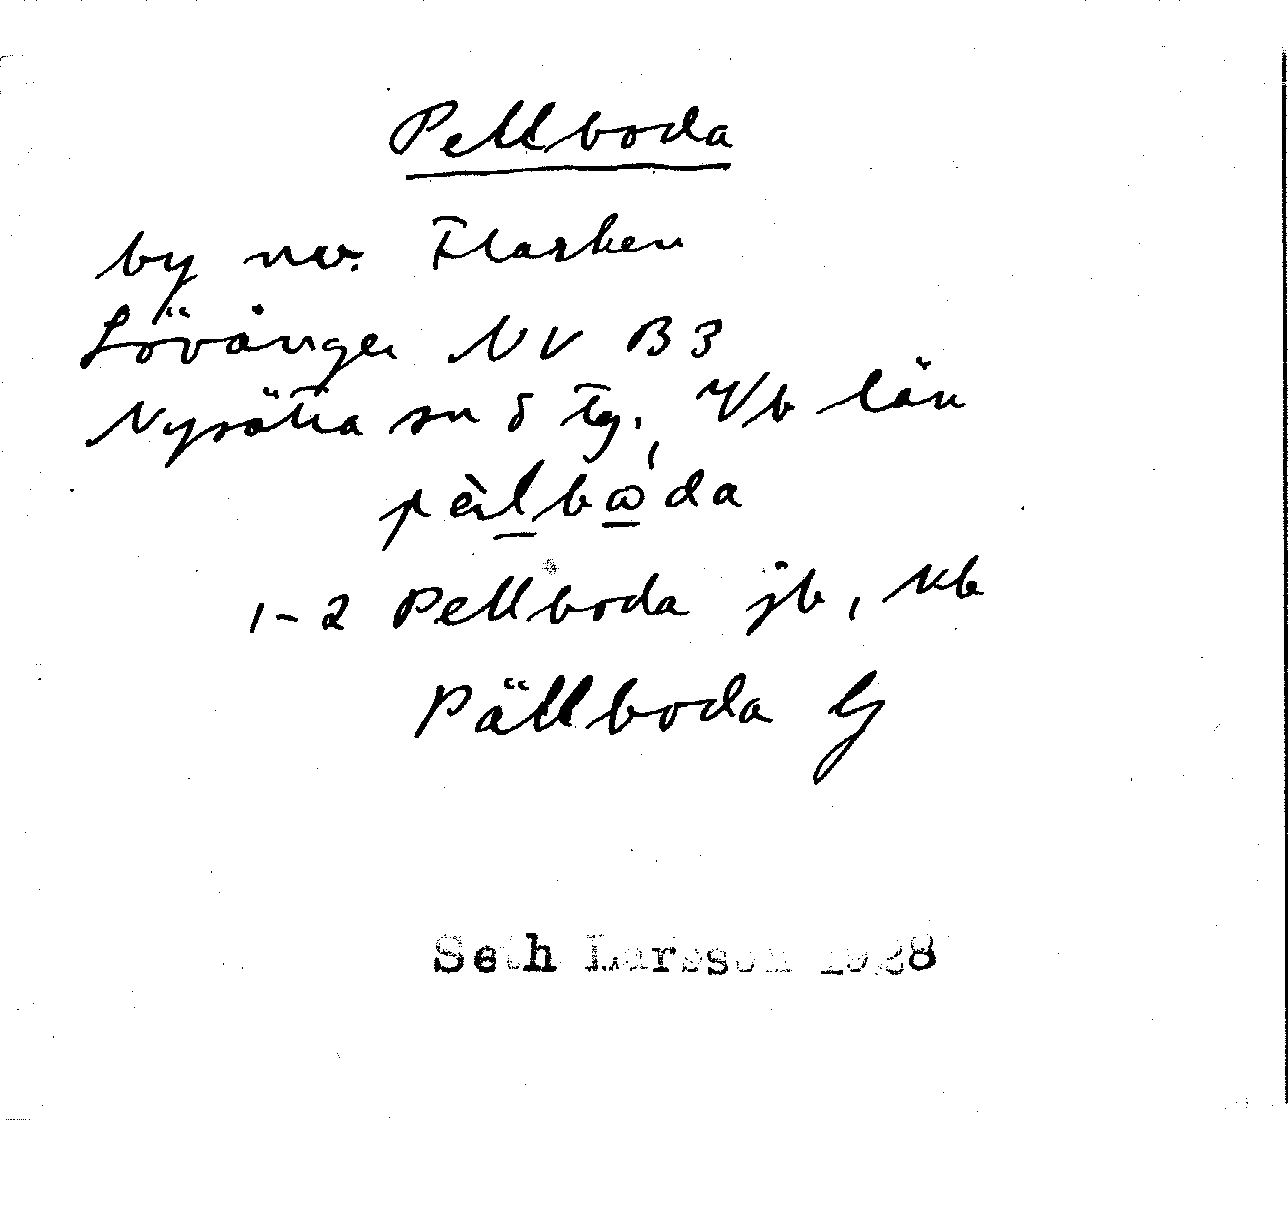 Pellboda
by nv. Flarken
Lövånger NV B 3
Nysätra sn ö tg, Vb län
pèlbὼda
1-2 Pellboda jb, kb
Pällboda G
Seth Larsson 1928